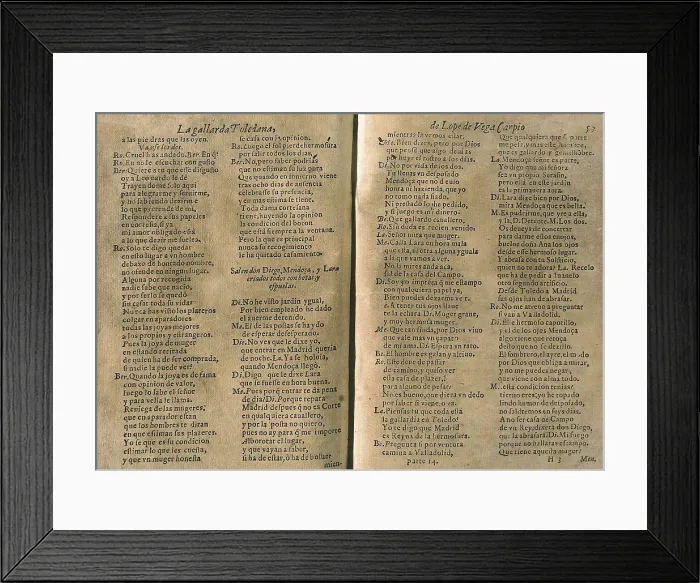 La gallarda Toledana,
a las piedras que las oyen.
Vanse los dos.
Ro. Cruel has andado. Ber. En q?
Ro. En no le escuchar con gusto
Ber. Quiere a tu que esse disgusto
oy a Leonardo le de
Trayendome solo aqui
para alegrarme y seruirme,
y no sabiendo dezirme
lo que pretende de mi.
Respondere a sus papeles
en cortesia, si ya
mi amor obligado està
a lo que dezirme sueles.
Ro. Solo te digo quedar
en esso lugar a vn hombre
debaxo de honrado nombre,
no ofende en ningun lugar.
Alguna por recogida
nadie sabe que nacio,
y por serlo se quedó
sin casar toda su vida
Nunca has visto los plateros
colgar en aparadores
todas las joyas mejores
a los propios y estrangeros.
Pues la joya de muger
en estando retirada
de quien ha de ser comprada,
si nadie la puede ver?
Ber. Quando la joya es de fama
con opinion de valor,
luego lo sabe el señor
y para vella le llama.
Reniega de las mugeres,
que en aparador estan
que los hombres te diran
en que estiman sus plazeres.
Yo se que essa condicion
estimar lo que les cuesta,
y que vn muger honesta
se casa con su opinion.
Ro. Luego el sol pierde hermosura
por salir todos los dias,
Ber. No, pero saber podrias
que no estiman su luz pura
Que quando en inuierno viene
tras ocho dias de ausencia
celebrase su presencia,
y en mas estima se tiene.
Toda dama cortesana
tiene, huyendo la opinion
la condicion del boton
que està siempre a la ventana.
Pero la que es principal
nunca su recogimiento
le ha quitado casamiento
Salen don Diego, Mendoça, y Lara
criados todos con botas y
espuelas.
Di. No he visto jardin ygual,
Por bien empleado he dado
el auerme detenido.
Me. El de las postas se ha ydo
de esperar desesperado.
Di. No ves que le dixe yo,
que entrar en Madrid queria
de noche. La. Ya se boluia,
quando Mendoça llegó.
Di. Digo que le dixe Lara
que se fuesse en hora buena.
Ma. Pues porq entrar te da pena
de dia? Di. Porque repara
Madrid despues q̃ no es Corte
en qualquiera cauallero,
y por la posta no quiero,
pues no ay para q̃ me importe
Alborotar el lugar,
y que vayan a saber,
si ha de estar, ò ha de boluer
mien-
de Lope de Vega Carpio 57
mientras le vemos estar.
Me. Bien dizes, pero por Dios
que pense que algo dexas
por huyr el rostro a los dias.
Di. No por vida de los dos.
Tu tienas no desposado
Mendoça que no le cuio
honra ni hazienda, que yo
no tomo nada fiado.
Ni prestado so he pedido,
y si juego es mi dinero.
Be. Que gallardo cauallero,
Ro. Sin duda es recien venido.
Me. Señor mira que muger.
Ma. Calla Lara en hora mala
que essa, si otra alguna yguala
a la que vamos a ver.
No la mires anda acá,
sal de la casa del Campo.
Di. Soy yo impressa q̃ me estampo
con qualquiera papel ya,
Bien puedes dexarme ver.
si tienes tus ojos llave
te la echara. Di. Muger graue,
y muy hermosa muger.
Me. Que tan linda, por Dios viuo
que vale mas vn çapato
de mi ama. Di. Espera vn rato.
Be. El hombre es galan y altiuo.
Ro. Esse deue de passar
de camino, y quiso ver
esta casa de plazer,
para alguno de pesar.
No es bueno, que dirá vn dedo
por saber si viene, o va.
Le. Piensas tu que toda ella
la gallarda en Toledo?
Yo te digo que Madrid
es Reyna de la hermosura.
Be. Pregunta si por ventura
camina a Valladolid,
parte 14.
Que qualquiera que se parte
me pesa, mas esse, hazte a ver,
que es gallardo y gentilhombre.
La. Mendoça señor es parte,
Yo digo que mi señora
sea vn propio Serafin,
pero està en esse jardin
es la primauera aora.
Di. Lara dize bien por Dios,
mira Mendoça que es bella.
M. Es pudrirme, que yre a ella,
y la, D. Detente. M. Los dos.
Os deueys de concertar
para darme estos enojos,
buelue doña Ana los ojos
desde esse hermoso lugar.
Y abrasala con tu Sossiego,
quien no te adora? La. Recelo
que ha de poner a su Inanelo
otro segundo artificio.
Desde Toledo a Madrid
sus ojos han de abrasar.
Ro. No me atreuo a preguntar
si van a Valladolid.
Di. Ele hermoso capotillo,
y el de los ojos Mendoça
algo tiene que retoça
del o que no se dezillo.
El sombrero, el ayre, el modo
por Dios que obliga a mirar,
y no me puedes negar,
que viene con alma todo.
M. essa condicion tenias?
tierno eres; yo he topado
lindo humor de desposado,
no saldremos en seys dias.
A no ser casa de Campo
de vn Rey, dixera dos Diego,
que la abrasara. Di. Mi fuego
porque no hallara escampo.
Que tiene aquesta muger?
H 3 Men.